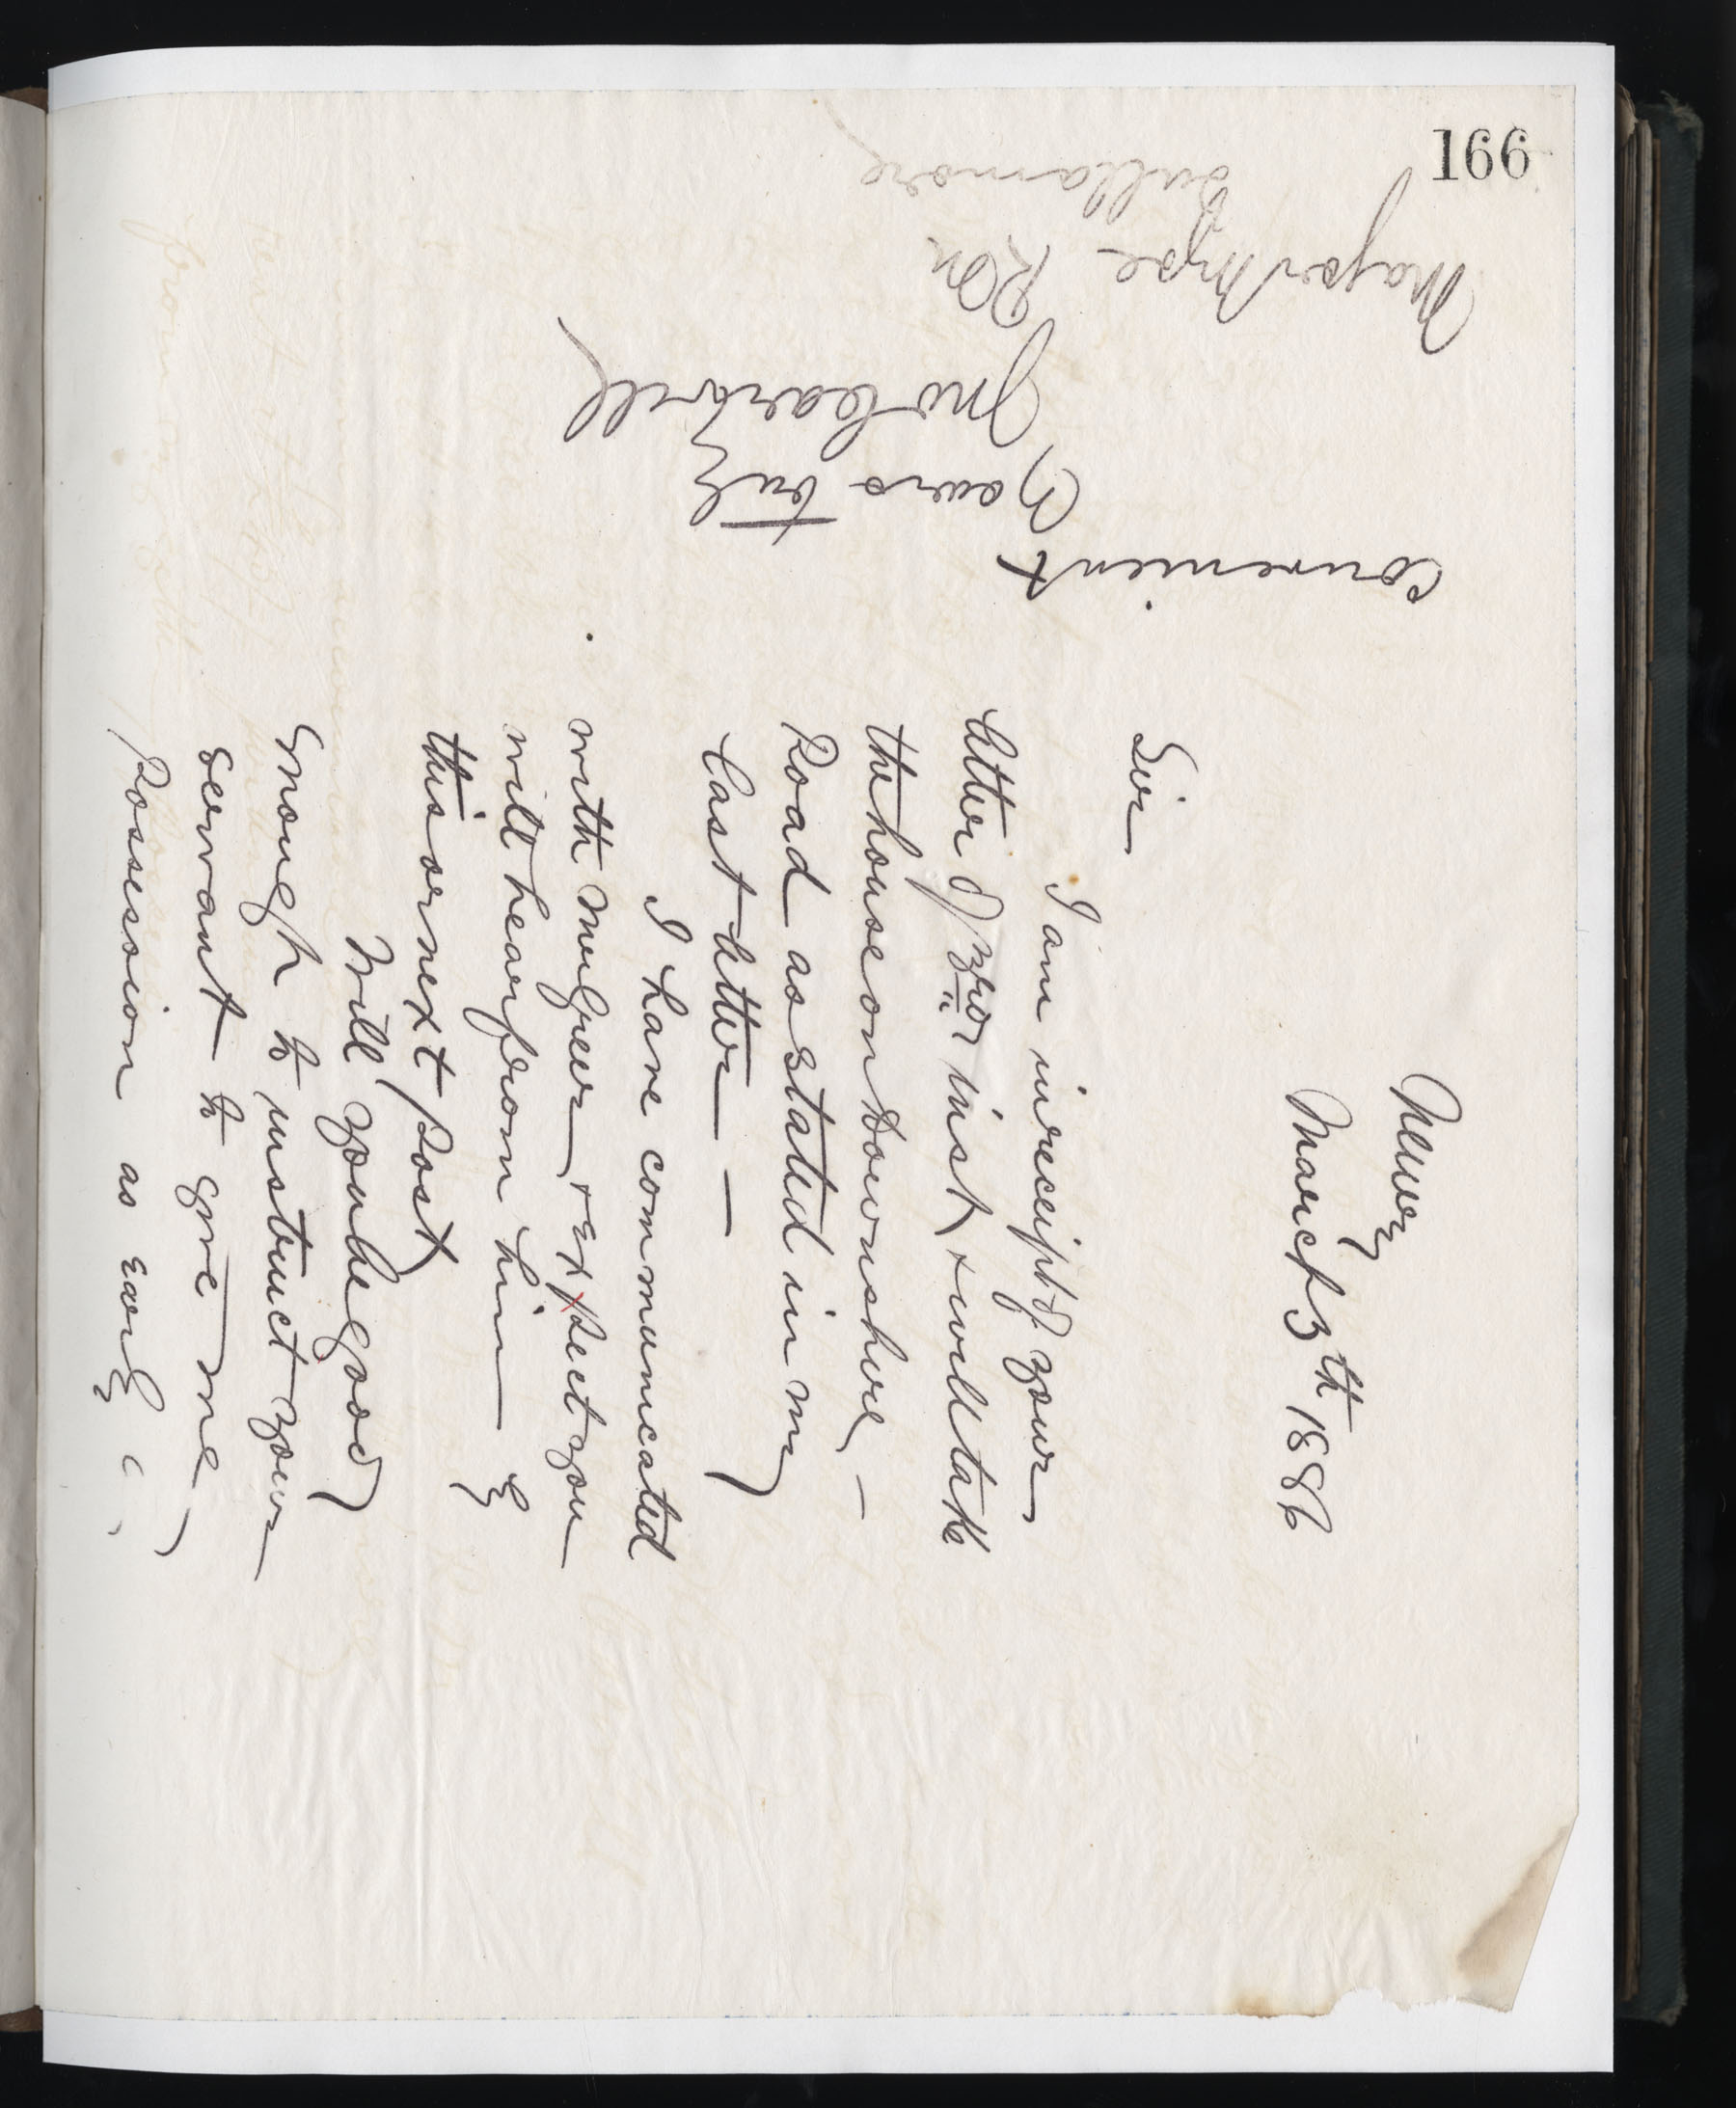 166
Newry
March 5th 1886
Sir
I am in receipt of your
letter of 3rd inst & will take
the house on Downshire
Road as stated in my
last letter —
I have communicated
with Mulgrew & expect you
will hear from him by
this or next post
Will you be good
enough to instruct your
servant to give me
possession as early
convenient
Yours truly
Jno Cartmill
Major Wyse RM
Tullamore